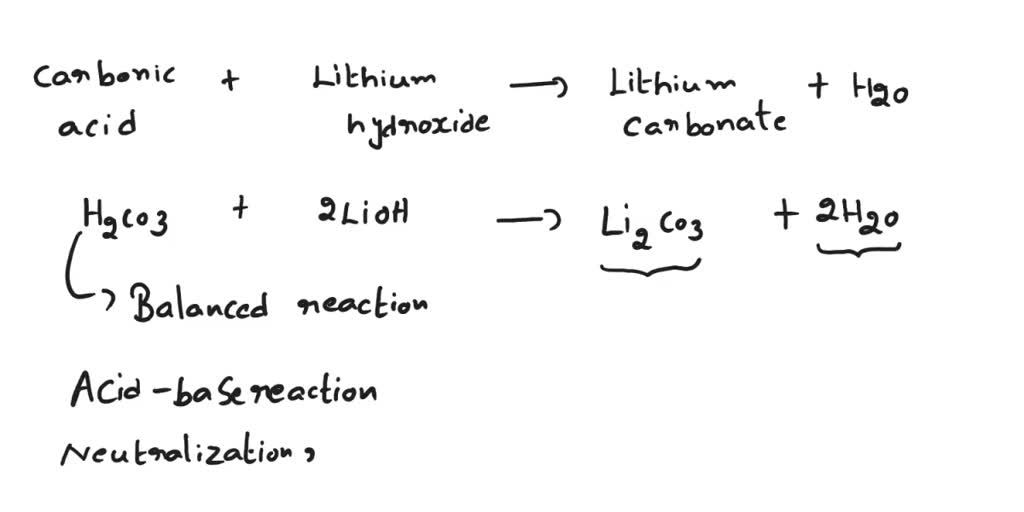 Carbonic + Lithium → Lithium + H2O
acid hydroxide carbonate
H2CO3 + 2LiOH → Li2CO3 + 2H2O
Balanced reaction
Acid-base reaction
Neutralization,